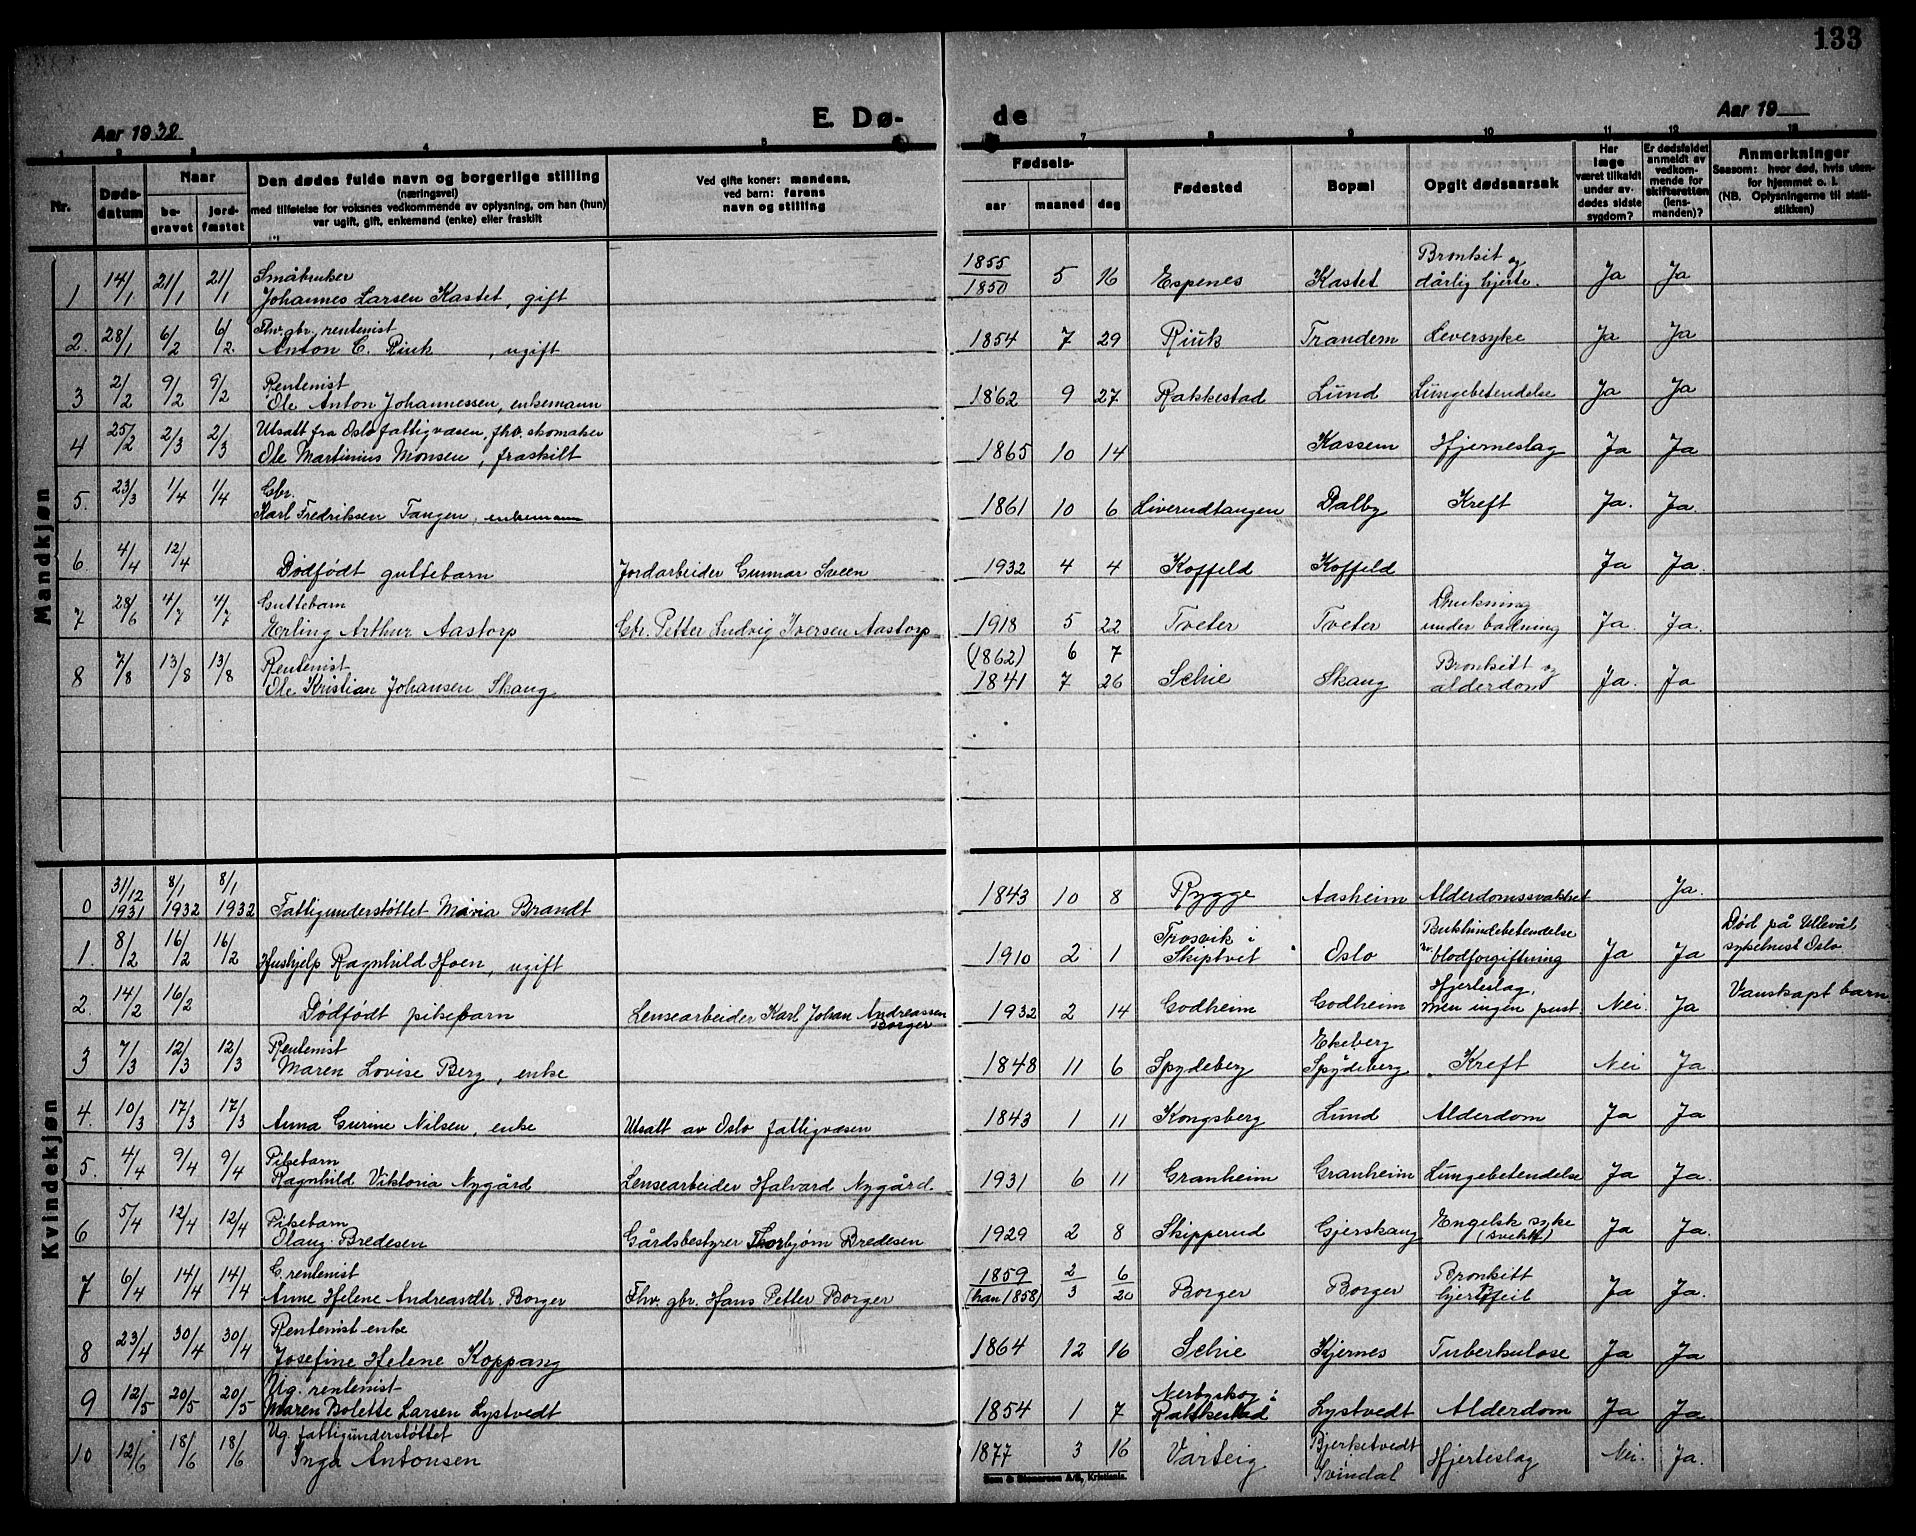 133
Aar 1932 E. Dø- de Aar 19
1 2 3 4 5 7 8 9 10 11 12 13
Nr. Døds-datum Naar be-gravet jord-fæstet Den dødes fulde navn og borgerlige stilling (næringsvei) med tilføielse for voksnes vedkommende av oplysning, om han (hun) var ugift, gift, enkemand (enke) eller fraskilt Ved gifte koner: mandens, ved barn: farens navn og stilling Fødsels- aar maaned dag Fødested Bopæl Opgit dødsaarsak Har læge været tilkaldt under av-dødes sidste sygdom? Er dødsfaldet anmeldt av vedkom-mende for skifteretten (lens-manden)? Anmerkninger Saasom: hvor død, hvis uten-for hjemmet o. l. (NB. Oplysningerne til stati-stikken)
Mandkjøn
1 14/1 21/1 21/1 Småbruker Johannes Larsen Kastet, gift 1855 1850 5 16 Espenes Kastet Bronkit og dårlig hjerte. Ja Ja
2. 28/1 6/2 6/2. Fhv. gbr., rentenist Anton C. Riuk, ugift 1854 7 29 Riuk Trandem Leversyke Ja Ja
3 2/2 9/2 9/2 Rentenist Ole Anton Johannessen, enkemann 1862 9 27 Rakkestad Lund Lungebetendelse Ja Ja
4 25/2 2/3 2/3 Utsatt fra Oslo fattigvæsen, fhv. skomaker Ole Martinius Monsen, fraskilt 1865 10 14 Kassem Hjerneslag Ja Ja
5. 23/3 1/4 1/4 Gbr. Karl Fredriksen Tangen, enkemann 1861 10 6 Liverudtangen Dalby Kreft Ja. Ja.
6. 4/4 12/4 Dødfødt guttebarn Jordarbeider Gunnar Sveen 1932 4 4 Koffeld Koffeld Ja Ja.
7 28/6 4/7 4/7 Guttebarn Erling Arthur Aastorp Gbr. Petter Ludvig Iversen Aastorp 1918 5 22 Tveter Tveter Drukning under badning Ja. Ja.
8 7/8 13/8 13/8 Rentenist Ole Kristian Johansen Skaug (1862) 6 7 1841 7 26 Schie Skaug Bronkitt og alderdom Ja. Ja
Kvindekjøn
0 31/12 1931 8/1 1932 8/1 1932 Fattigunderstøttet Maria Brandt 1843 10 8 Rygge Aasheim Alderdomssvakhet Ja.
1. 8/2 16/2 16/2 Hushjelp Ragnhild Hoen, ugift 1910 2 1 Trosvik i Skiptvet Oslo Bukhindebetendelse blodforgiftning Ja Ja Død på Ullevål sykehus Oslo
2. 14/2 16/2 Dødfødt pikebarn Lensearbeider Karl Johan Andreassen Borger 1932 2 14 Godheim Godheim Hjerteslag, men ingen pust. Nei. Ja Vanskapt barn
3 7/3 12/3 12/3 Rentenist Maren Lovise Berg, enke 1848 11 6 Spydeberg Ekeberg Spydeberg Kreft Nei Ja.
4. 10/3 17/3 17/3 Anna Gurine Nilsen, enke Utsatt av Oslo fattigvæsen 1843 1 11 Kongsberg Lund Alderdom Ja Ja
5. 4/4 9/4 9/4 Pikebarn Ragnhild Viktoria Nygård Lensearbeider Halvard Nygård. 1931 6 11 Granheim Granheim Lungebetendelse Ja Ja.
6 5/4 12/4 12/4 Pikebarn Olaug Bredesen Gårdsbestyrer Thorbjørn Bredesen 1929 2 8 Skipperud Gjerskaug Engelsk syke (svekk) Ja Ja.
7 6/4 14/4 14/4 G. rentenist Anne Helene Andreasdtr. Borger Fhv. gbr. Hans Petter Borger 1859 (han 1858) 2/3 6/20 Borger Borger Bronkitt hjertefeil Ja Ja.
8 23/4 30/4 30/4 Rentenist-enke Josefine Helene Koppang 1864 12 16 Schie Kjernes Tuberkulose Ja Ja
9 12/5 20/5 20/5 Ug. rentenist Maren Bolette Larsen Lystvedt 1854 1 7 Nerbyskog i Rakkestad Lystvedt Alderdom Ja Ja.
10 12/6 18/6 18/6 Ug. fattigunderstøttet Inga Antonsen 1877 3 16 Varteig Bjerketvedt Svindal Hjerteslag Nei. Ja.
Sem & Stenersen A/S, Kristiania.